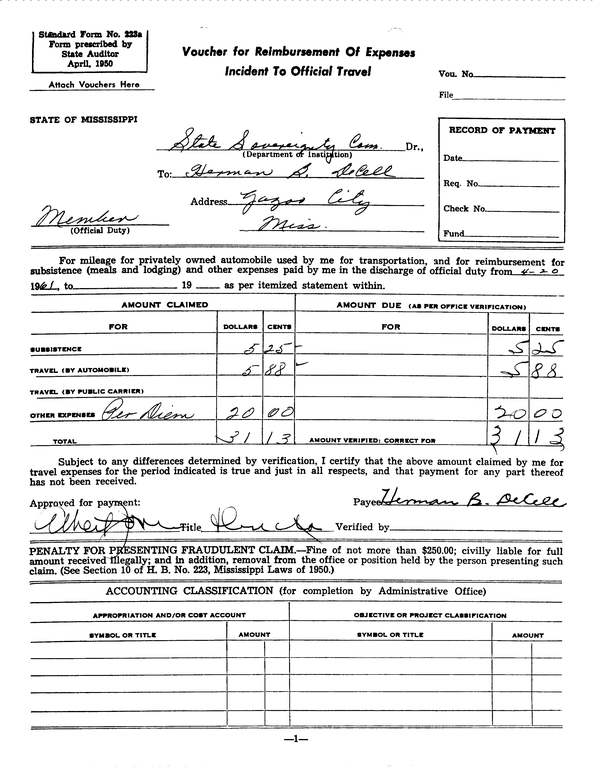 Standard Form No. 223a
Form prescribed by
State Auditor
April, 1950
Attach Vouchers Here
Voucher for Reimbursement Of Expenses
Incident To Official Travel
Vou. No.
File
STATE OF MISSISSIPPI
State Sovereignty Com. Dr.,
(Department or Institution)
To: Herman B. DeCell
Address Yazoo City
Miss.
Member
(Official Duty)
RECORD OF PAYMENT
Date
Req. No.
Check No.
Fund
For mileage for privately owned automobile used by me for transportation, and for reimbursement for
subsistence (meals and lodging) and other expenses paid by me in the discharge of official duty from 4-20
1961, to 19 as per itemized statement within.
AMOUNT CLAIMED AMOUNT DUE (AS PER OFFICE VERIFICATION)
FOR DOLLARS CENTS FOR DOLLARS CENTS
SUBSISTENCE 5 25 5 25
TRAVEL (BY AUTOMOBILE) 5 88 5 88
TRAVEL (BY PUBLIC CARRIER)
OTHER EXPENSES Per Diem 20 00 20 00
TOTAL 31 13 AMOUNT VERIFIED: CORRECT FOR 31 13
Subject to any differences determined by verification, I certify that the above amount claimed by me for
travel expenses for the period indicated is true and just in all respects, and that payment for any part thereof
has not been received.
Approved for payment: Payee Herman B. DeCell
Title Verified by
PENALTY FOR PRESENTING FRAUDULENT CLAIM.—Fine of not more than $250.00; civilly liable for full
amount received illegally; and in addition, removal from the office or position held by the person presenting such
claim. (See Section 10 of H. B. No. 223, Mississippi Laws of 1950.)
ACCOUNTING CLASSIFICATION (for completion by Administrative Office)
APPROPRIATION AND/OR COST ACCOUNT OBJECTIVE OR PROJECT CLASSIFICATION
SYMBOL OR TITLE AMOUNT SYMBOL OR TITLE AMOUNT
—1—